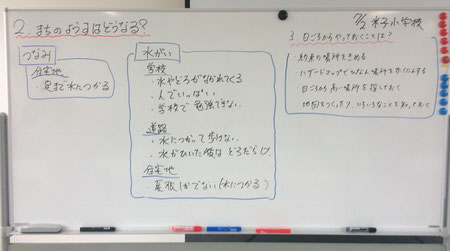 2. まちのようすはどうなる?
つなみ
住宅地
・足まで水につかる
水がい
学校
・水やどろがながれてくる
・人でいっぱい
・学校で勉強できない
道路
・水につかって歩けない
・水がひいた後は どろだらけ
住宅地
・屋根しかでない(水につかる)
水子小学校
3. 日ごろからやっておくことは?
・約束の場所をきめる
・ハザードマップで
場所を
にする
日ごろから高い場所を探しておく
地図をつくったり、いろいろなことを
ておく